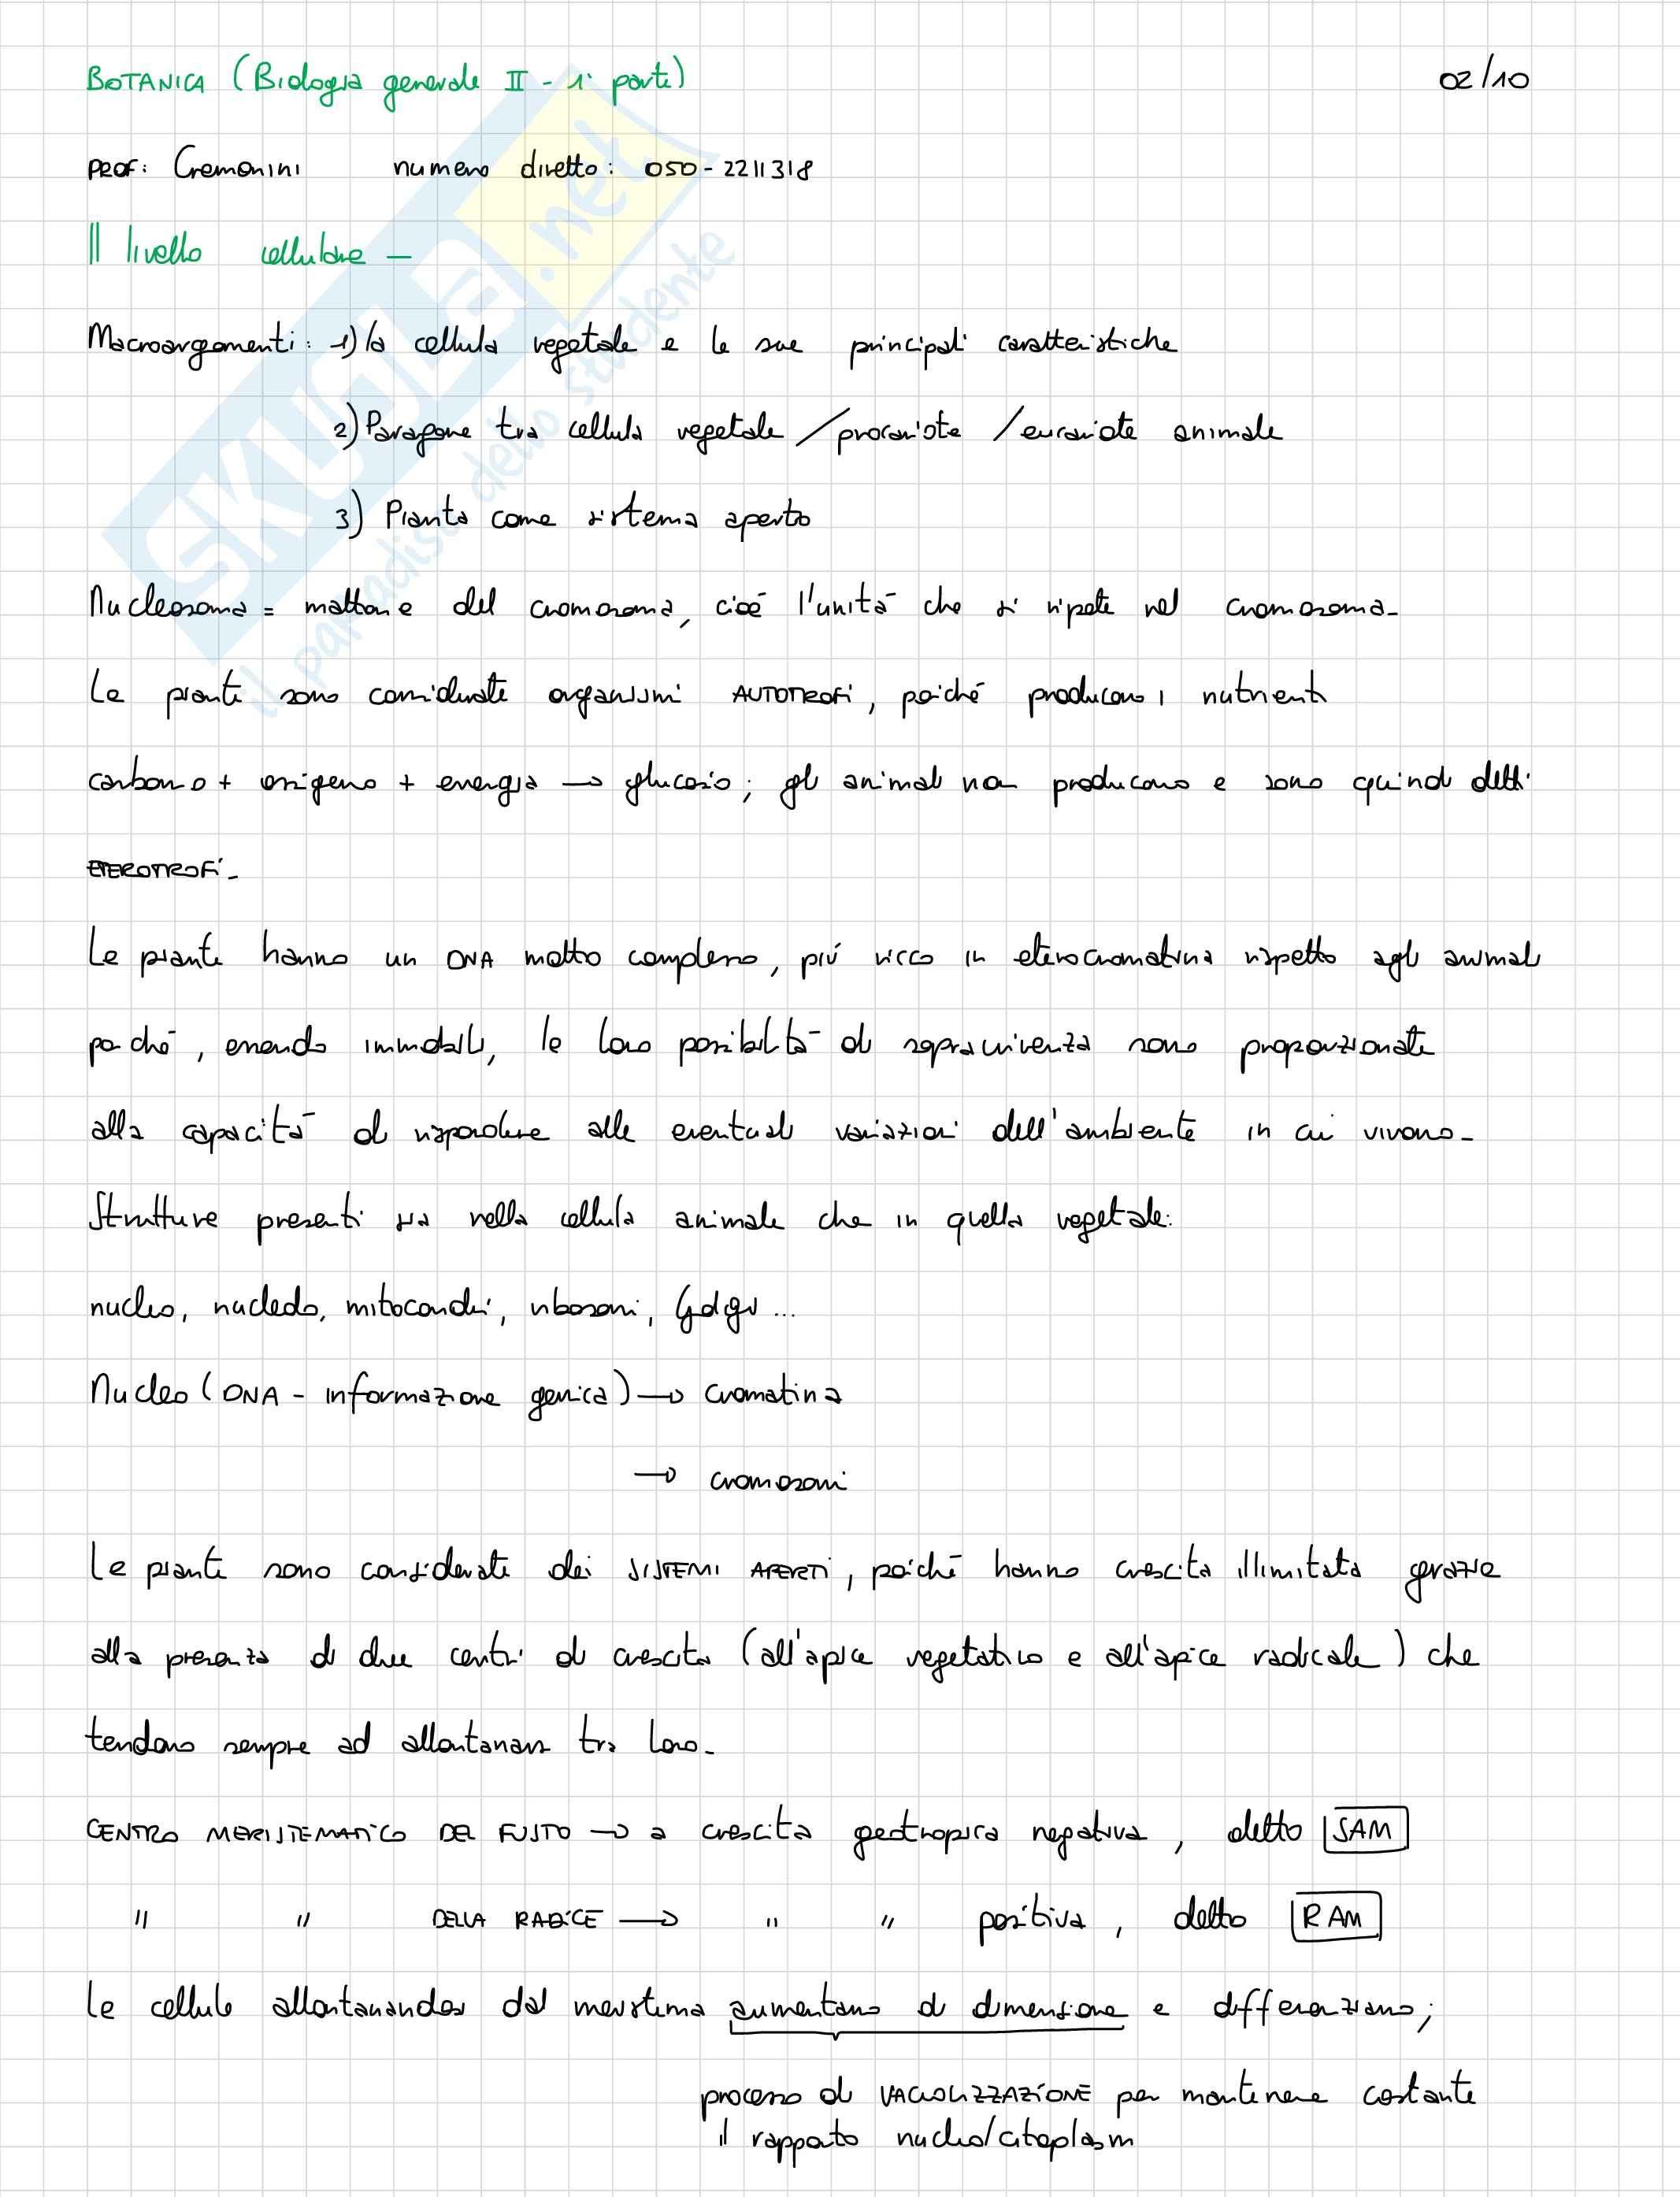 BOTANICA (Biologia generale II - 1ª parte) 02/10
PROF: Cremonini numero diretto: 050-2211318
Il livello cellulare –
Macroargomenti: 1) la cellula vegetale e le sue principali caratteristiche
2) Paragone tra cellula vegetale / procariote / eucariote animale
3) Pianta come sistema aperto
Nucleosoma = mattone del cromosoma, cioè l'unità che si ripete nel cromosoma-
Le piante sono considerate organismi AUTOTROFI, poiché producono i nutrienti
carbonio + ossigeno + energia → glucosio; gli animali non producono e sono quindi detti
ETEROTROFI-
Le piante hanno un DNA molto complesso, più ricco in eterocromatina rispetto agli animali
poiché, essendo immobili, le loro possibilità di sopravvivenza sono proporzionate
alla capacità di rispondere alle eventuali variazioni dell'ambiente in cui vivono-
Strutture presenti sia nella cellula animale che in quella vegetale:
nucleo, nucleolo, mitocondri, ribosomi, Golgi ...
Nucleo (DNA - informazione genica) → cromatina
→ cromosomi
Le piante sono considerate dei SISTEMI APERTI, poiché hanno crescita illimitata grazie
alla presenza di due centri di crescita (all'apice vegetativo e all'apice radicale) che
tendono sempre ad allontanarsi tra loro-
CENTRO MERISTEMATICO DEL FUSTO → a crescita geotropica negativa, detto SAM
" " DELLA RADICE → " " positiva, detto RAM
Le cellule allontanandosi dal meristema aumentano di dimensione e differenziano;
processo di VACUOLIZZAZIONE per mantenere costante
il rapporto nucleo/citoplasm
SKUOLA.net
il paradiso dello studente